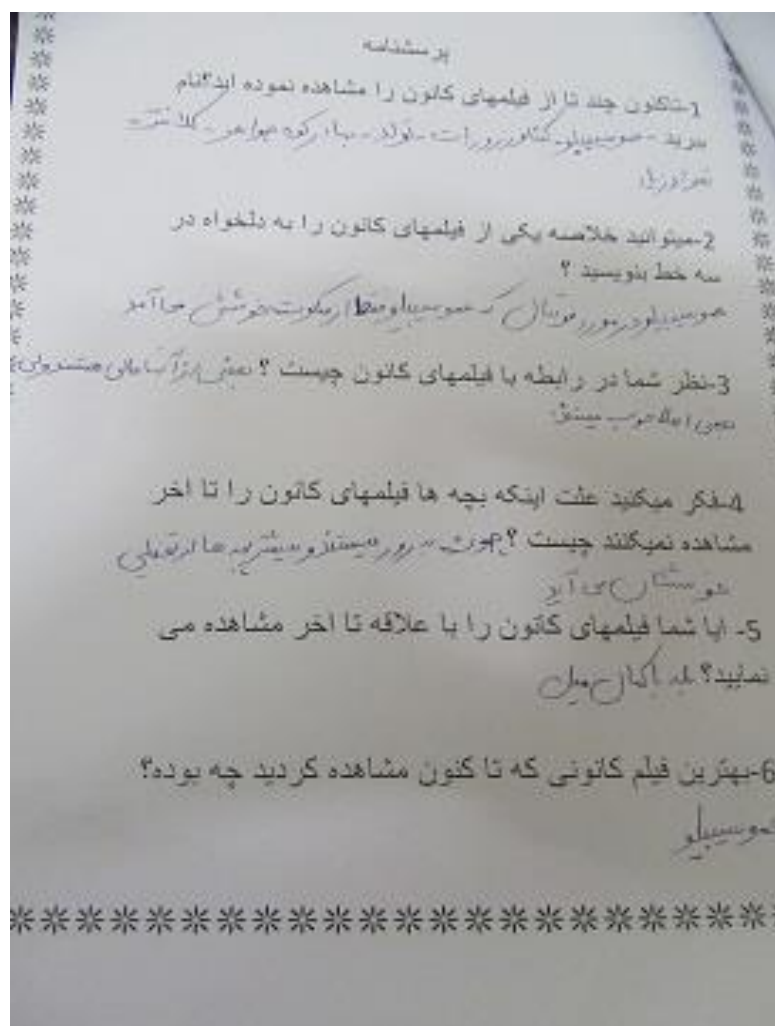 پرسشنامه
1-تاکنون چند تا از فیلمهای کانون را مشاهده نموده اید؟نام
ببرید - عموسیبیلو - تولد - کلانتر -
2-میتوانید خلاصه یکی از فیلمهای کانون را به دلخواه در
سه خط بنویسید ؟
عموسیبیلو در مورد فوتبال که عموسیبیلو فقط از سکوت خوشش می آمد
3-نظر شما در رابطه با فیلمهای کانون چیست ؟ بعضی از آنها عالی هستند ولی
بعضی اصلا خوب نیستند
4-فکر میکنید علت اینکه بچه ها فیلمهای کانون را تا اخر
مشاهده نمیکنند چیست ؟ چون نیستند و بیشتر بچه ها از
خوششان می آید
5- ایا شما فیلمهای کانون را با علاقه تا اخر مشاهده می
نمایید؟ بله با کمال میل
6-بهترین فیلم کانونی که تا کنون مشاهده کردید چه بوده؟
عموسیبیلو